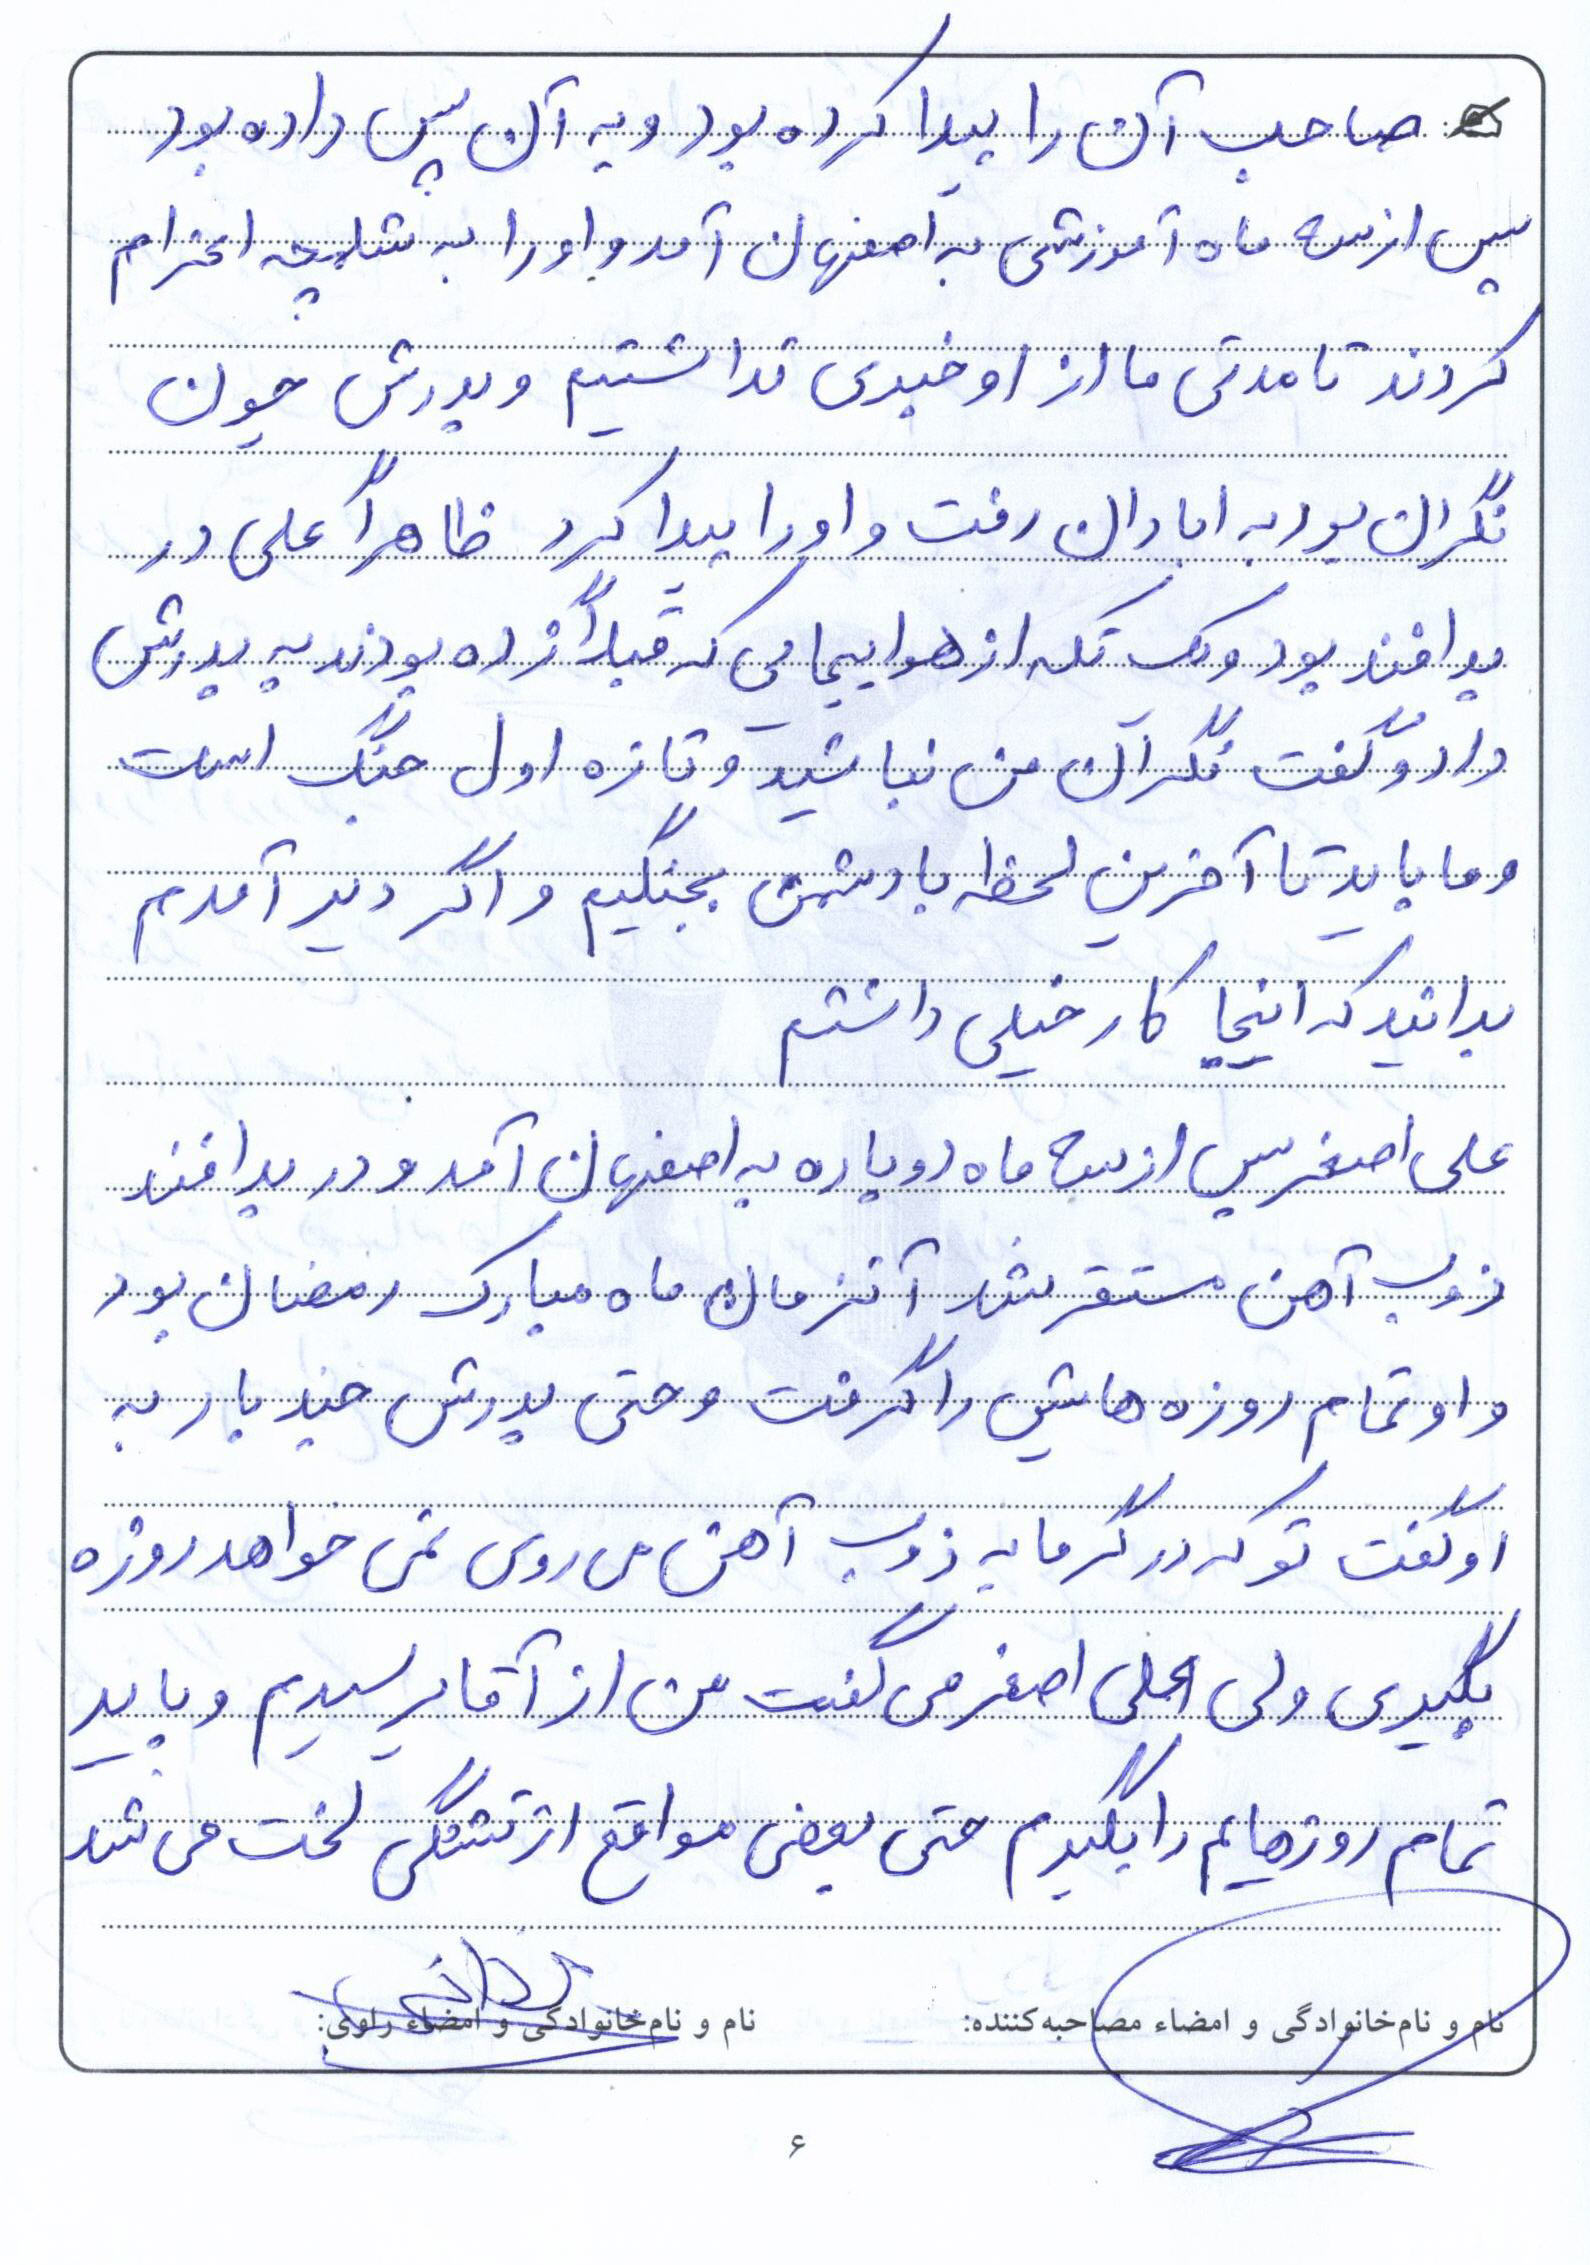 صاحب آن را پیدا کرده بود و به آن پس داده بود
پس از سه ماه آموزشی به اصفهان آمد و او را به شلمچه اعزام
کردند تا مدتی ما از او خبری نداشتیم و پدرش چون
نگران بود به ابادان رفت و او را پیدا کرد ظاهراً علی در
پدافند بود و یک تکه از هواپیمایی که قبلاً زده بودند به پدرش
داد و گفت نگران من نباشید و تازه اول جنگ است
و ما باید تا آخرین لحظه با دشمن بجنگیم و اگر دیر آمدم
بدانید که اینجا کار خیلی داشتم
علی اصغر پس از سه ماه دوباره به اصفهان آمد و در پدافند
ذوب آهن مستقر شد آنزمان ماه مبارک رمضان بود
و او تمام روزه هایش را گرفت و حتی پدرش چند بار به
او گفت تو که در گرما به ذوب آهن می روی نمی خواهد روزه
بگیری ولی علی اصغر می گفت من از آقا پرسیدم و باید
تمام روزهایم را بگیرم حتی بعضی مواقع از تشنگی لخت می شد
نام و نام‌خانوادگی و امضاء مصاحبه‌کننده: نام و نام‌خانوادگی و امضاء راوی:
۶